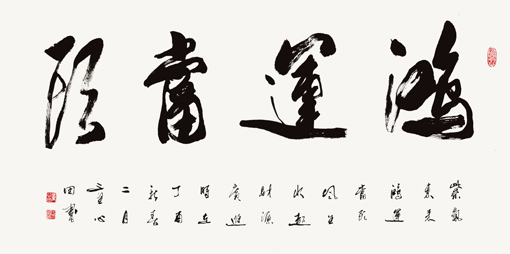 鴻運當頭
紫氣
東来
鴻運
當頭
風生
水起
財源
廣進
時在
丁酉
新春
二月
心
田書